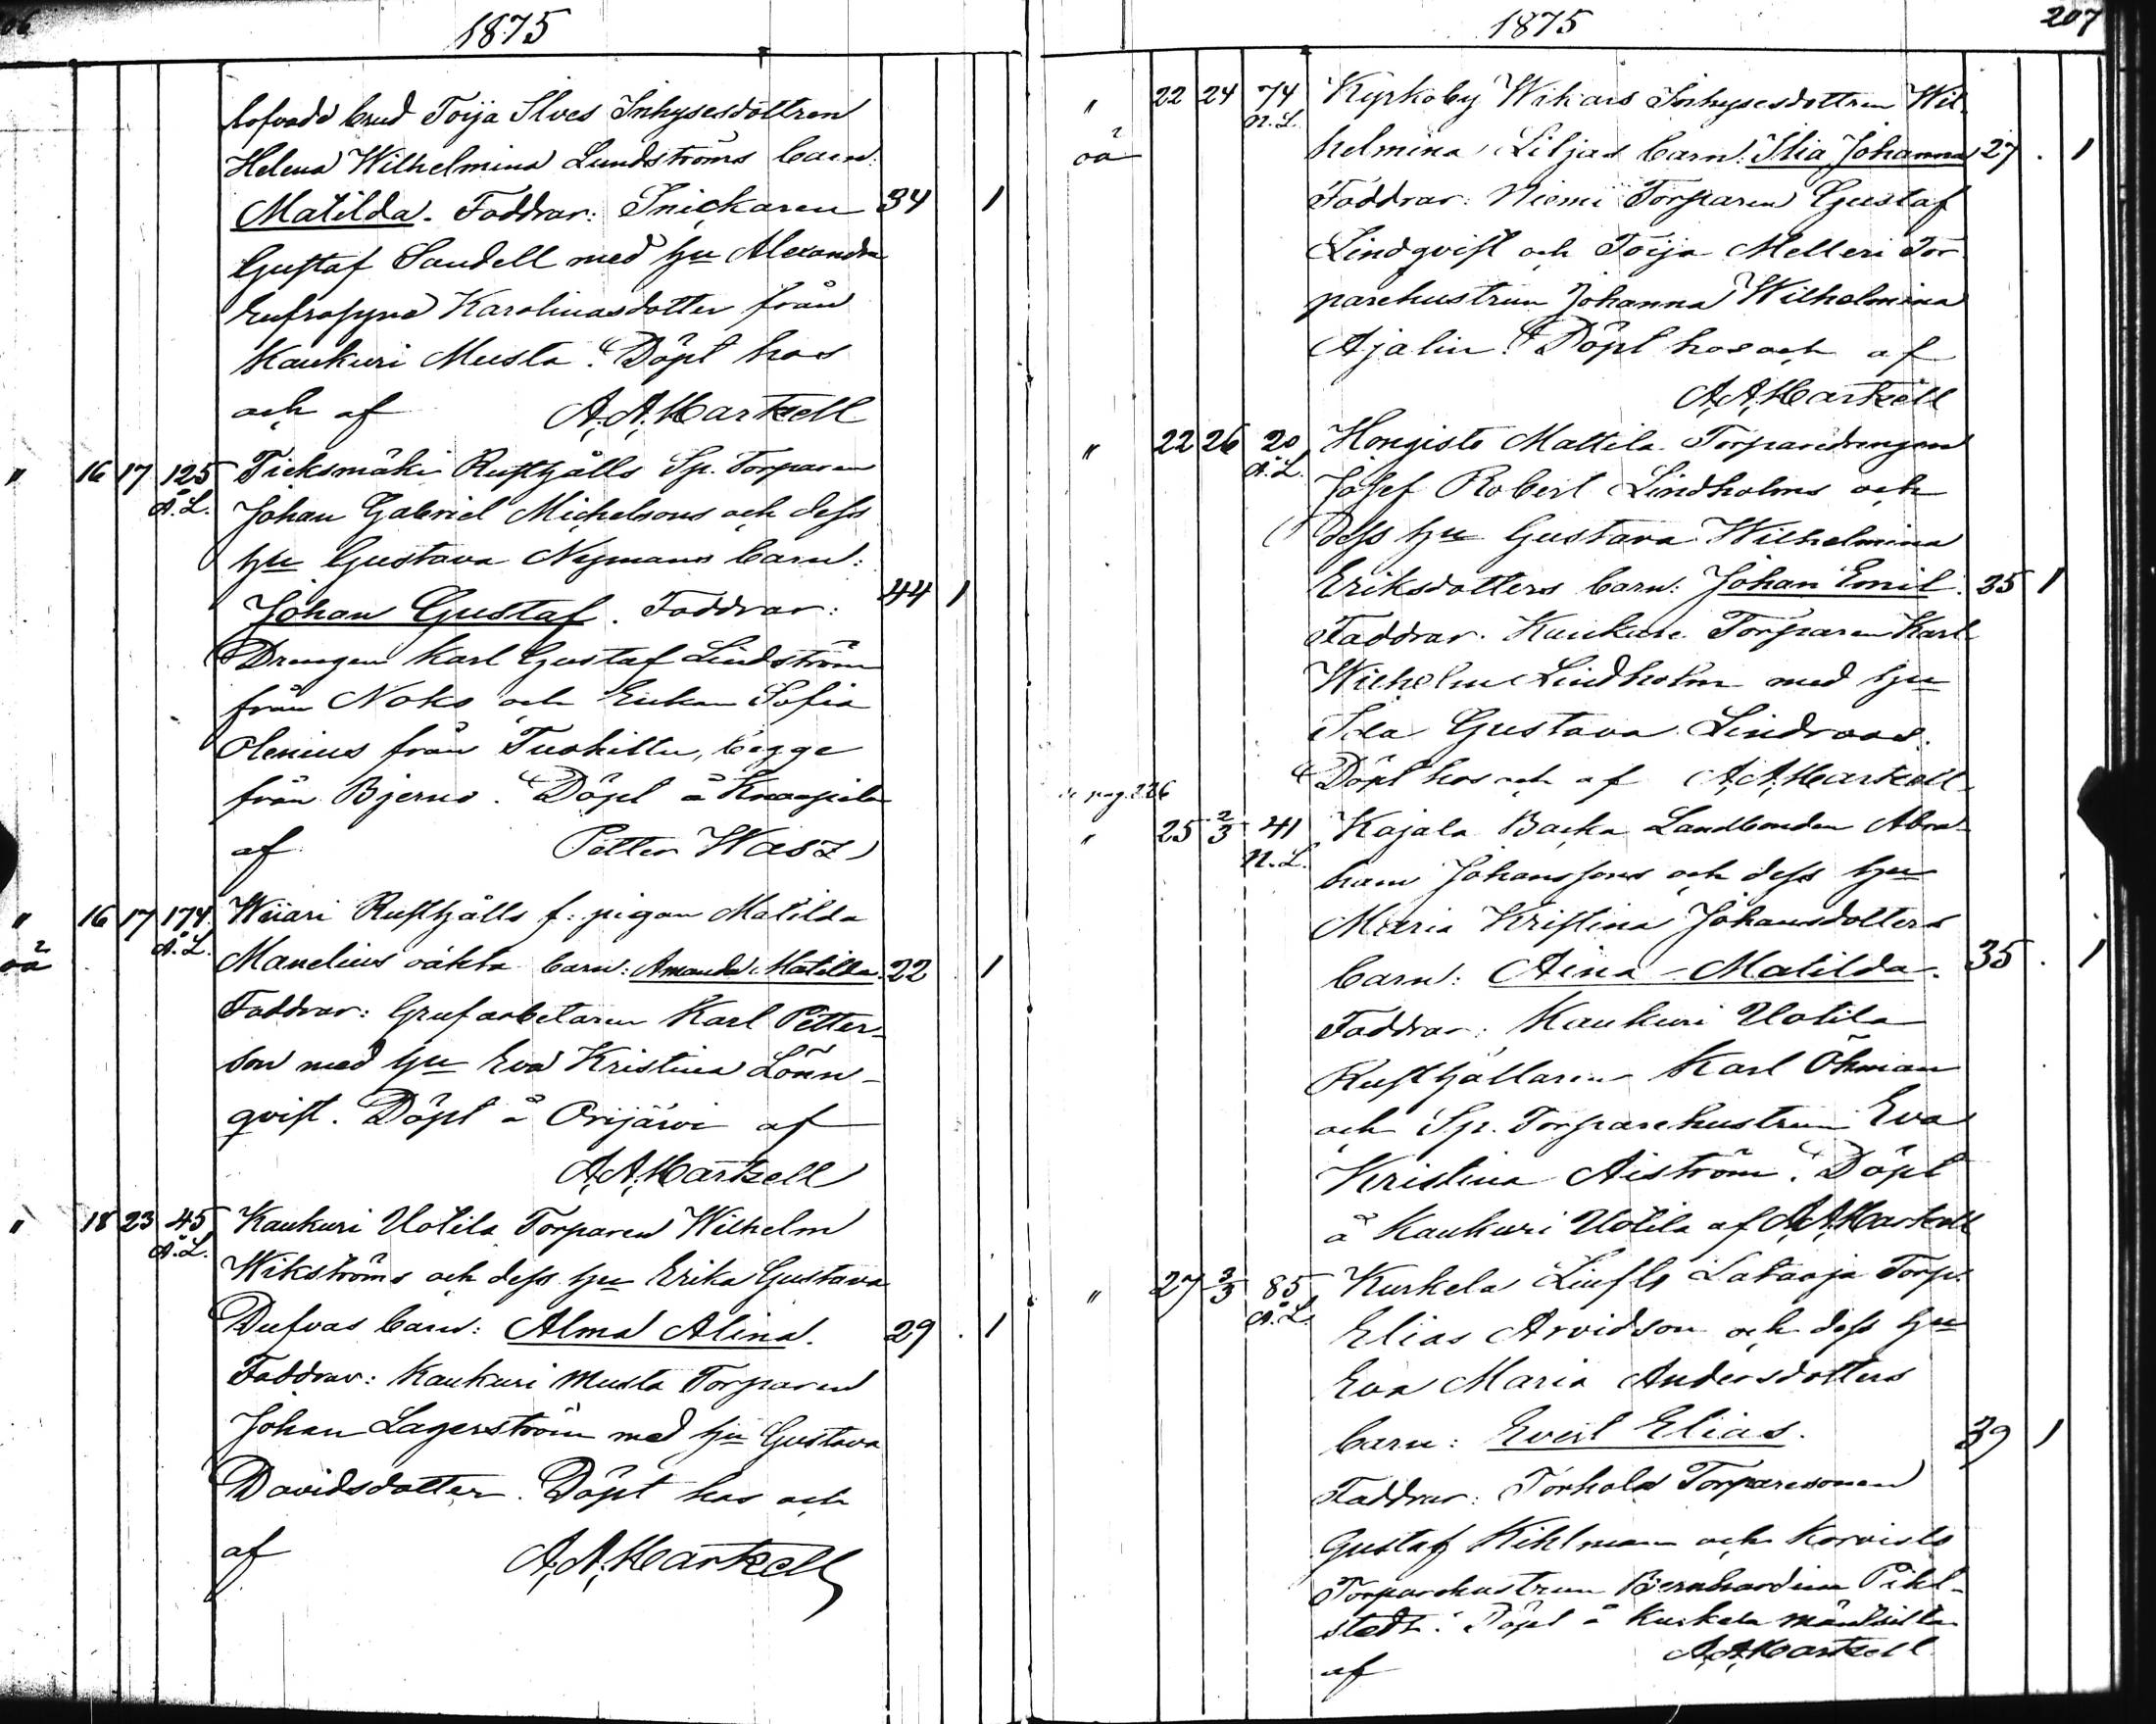 06
1875
lofvade brud Toija Slves Inhysesdottren
Helena Wilhelmina Lundströms barn:
Matilda. Faddrar: Snickaren 34 1
Gustaf Sandell med hu Alexandra
Eufrosyna Karolinasdotter från
Kaukuri Musta. Döpt hos
och af A. A. Hartzell
" 16 17 125 Tieksmäki Rusthålls Sp. Torparen
A.L. Johan Gabriel Michelsons och dess
hu Gustava Nymans barn:
Johan Gustaf. Faddrar: 44 1
Drengen Karl Gustaf Lindström
från Noks och Enkan Sofia
Olenius från Tuohittu, begge
från Bjerno. Döpt å Knaapila
af Petter Wasz
" 16 17 174 Wiiari Rusthålls f: pigan Matilda
oä A.L. Manelius oäkta barn: Amanda Matilda. 22 1
Faddrar: Grufarbetaren Karl Petter-
son med hu Eva Kristina Lönn-
qvist. Döpt å Orijärvi af
A. A. Hartzell
" 18 23 45 Kaukuri Uotila Torparen Wilhelm
A.L. Wikströms och dess hu Erika Gustava
Dufvas barn: Alma Alina. 29 1
Faddrar: Kaukuri Musta Torparen
Johan Lagerström med hu Gustava
Davidsdotter. Döpt hos och
af A. A. Hartzell
1875
207
" 22 24 74 Kyrkoby Wikars Inhysesdottren Wil-
oä N.L. helmina Liljas barn: Ilia Johanna 27 1
Faddrar: Niemi Torparen Gustaf
Lindqvist och Toija Melleri Tor-
parehustrun Johanna Wilhelmina
Ajalin. Döpt hos och af
A. A. Hartzell
" 22 26 20 Hongisto Mattila Torparedrengen
A.L. Josef Robert Lindholms och
dess hu Gustava Wilhelmina
Eriksdotters barn: Johan Emil. 35 1
Faddrar: Kaukuri Torparen Karl
Wilhelm Lindholm med hu
Ida Gustava Lindroos.
Döpt hos och af A. A. Hartzell
pag. 226
" 25 2/3 41 Kajala Backa Landbonden Abra-
N.L. ham Johanssons och dess hu
Maria Kristina Johansdotters
barn: Aina Matilda. 35 1
Faddrar: Kaukuri Uotila
Rusthållaren Karl Öhman
och Sp. Torparehustrun Eva
Kristina Aiström. Döpt
å Kaukuri Uotila af A. A. Hartzell
" 27 2/3 85 Kurkela Latauja Torp.
A.L. Elias Arvidson och dess hu
Eva Maria Andersdotters
barn: Evert Elias. 39 1
Faddrar: Torhola Torparesonen
Gustaf Kihlman och Korvists
Torparehustrun Bernhardina Pihl-
stedt. Döpt å Kurkela
af A. A. Hartzell